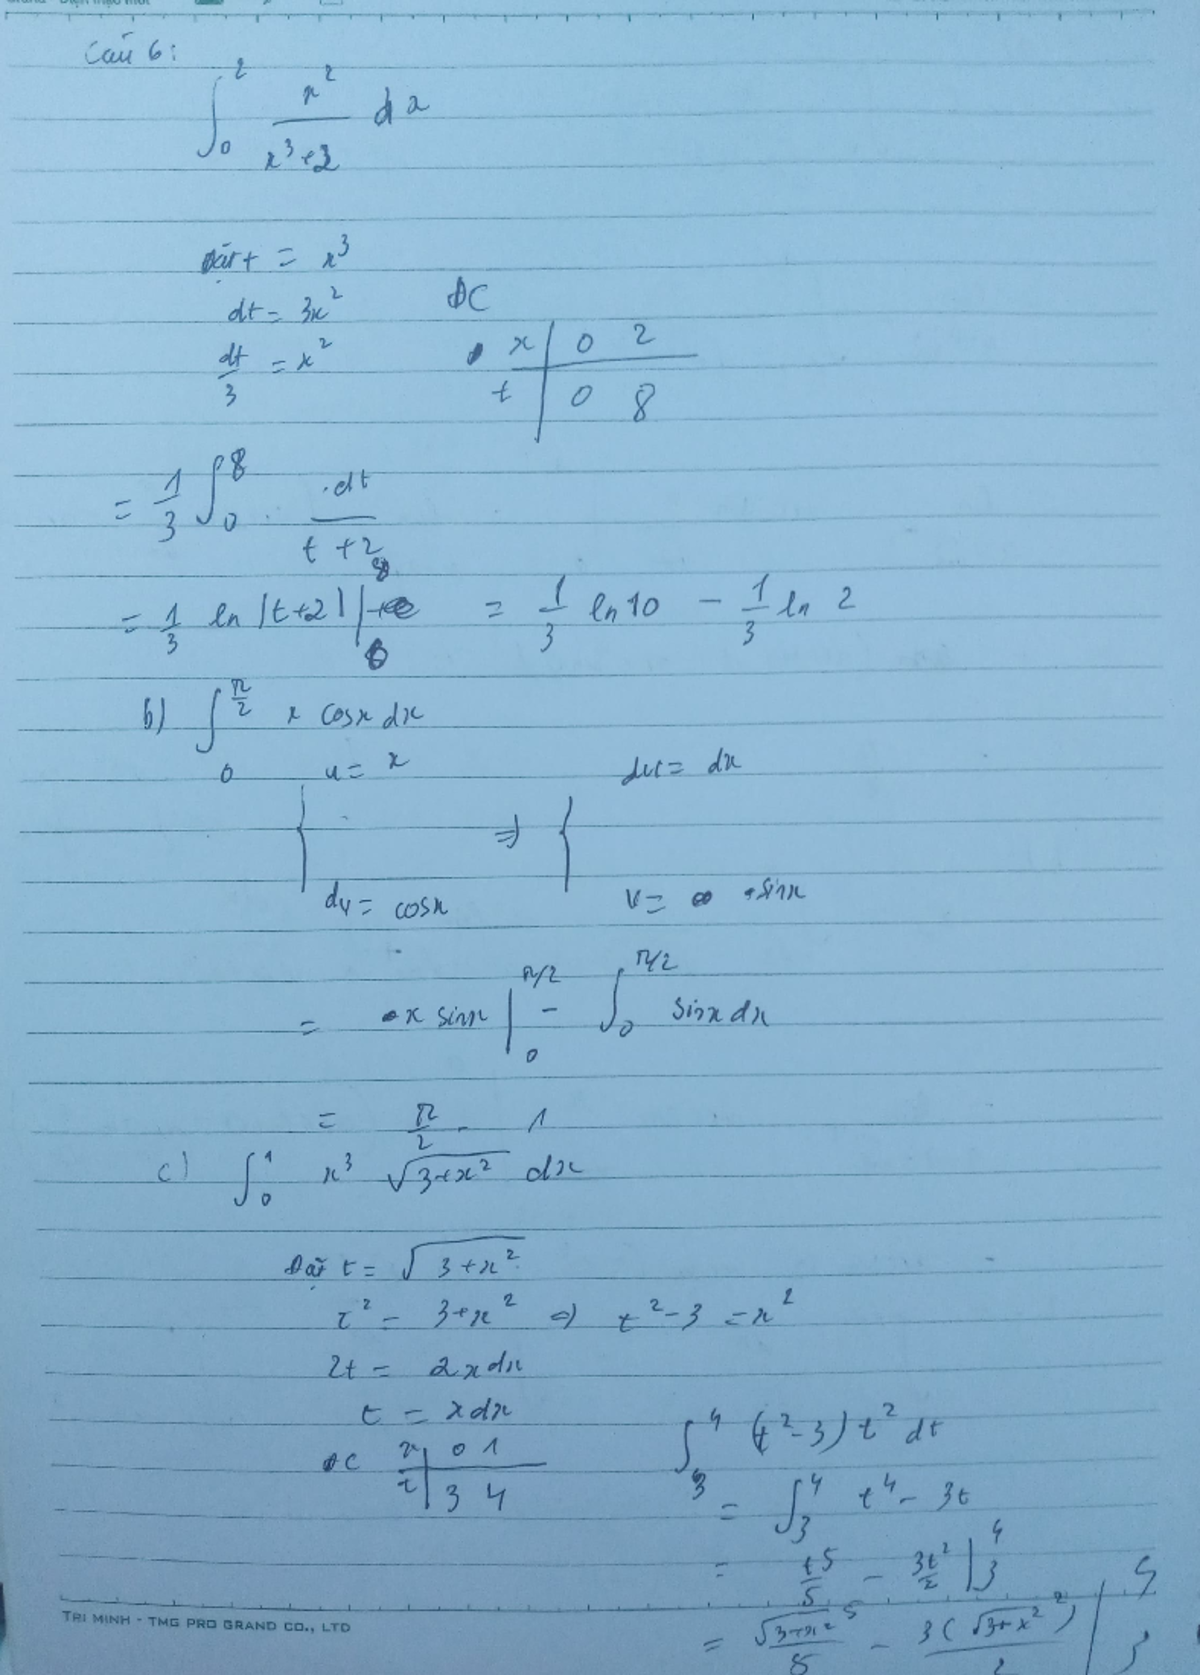 Câu 6:
∫₀² x²/(x³+2) dx
Đặt t = x³
dt = 3x²
dt/3 = x²
ĐC
x | 0 2
t | 0 8
= 1/3 ∫₀⁸ dt/(t+2)
= 1/3 ln|t+2| |₀⁸ = 1/3 ln10 - 1/3 ln 2
b) ∫₀^(π/2) x cosx dx
{ u = x ⇒ { du = dx
dv = cosx v = sinx
= x sinx |₀^(π/2) - ∫₀^(π/2) sinx dx
= π/2 - 1
c) ∫₀¹ x³ √(3+x²) dx
Đặt t = √(3+x²)
t² = 3+x² ⇒ t²-3 = x²
2t = 2xdx
t = xdx
ĐC
x | 0 1
t | 3 4
∫₃⁴ (t²-3) t² dt
= ∫₃⁴ t⁴ - 3t
= t⁵/5 - 3t²/2 |₃⁴
= √(3+x²)⁵/5 - 3(√(3+x²)²)/2 |₃⁴
TRI MINH - TMG PRO GRAND CO., LTD